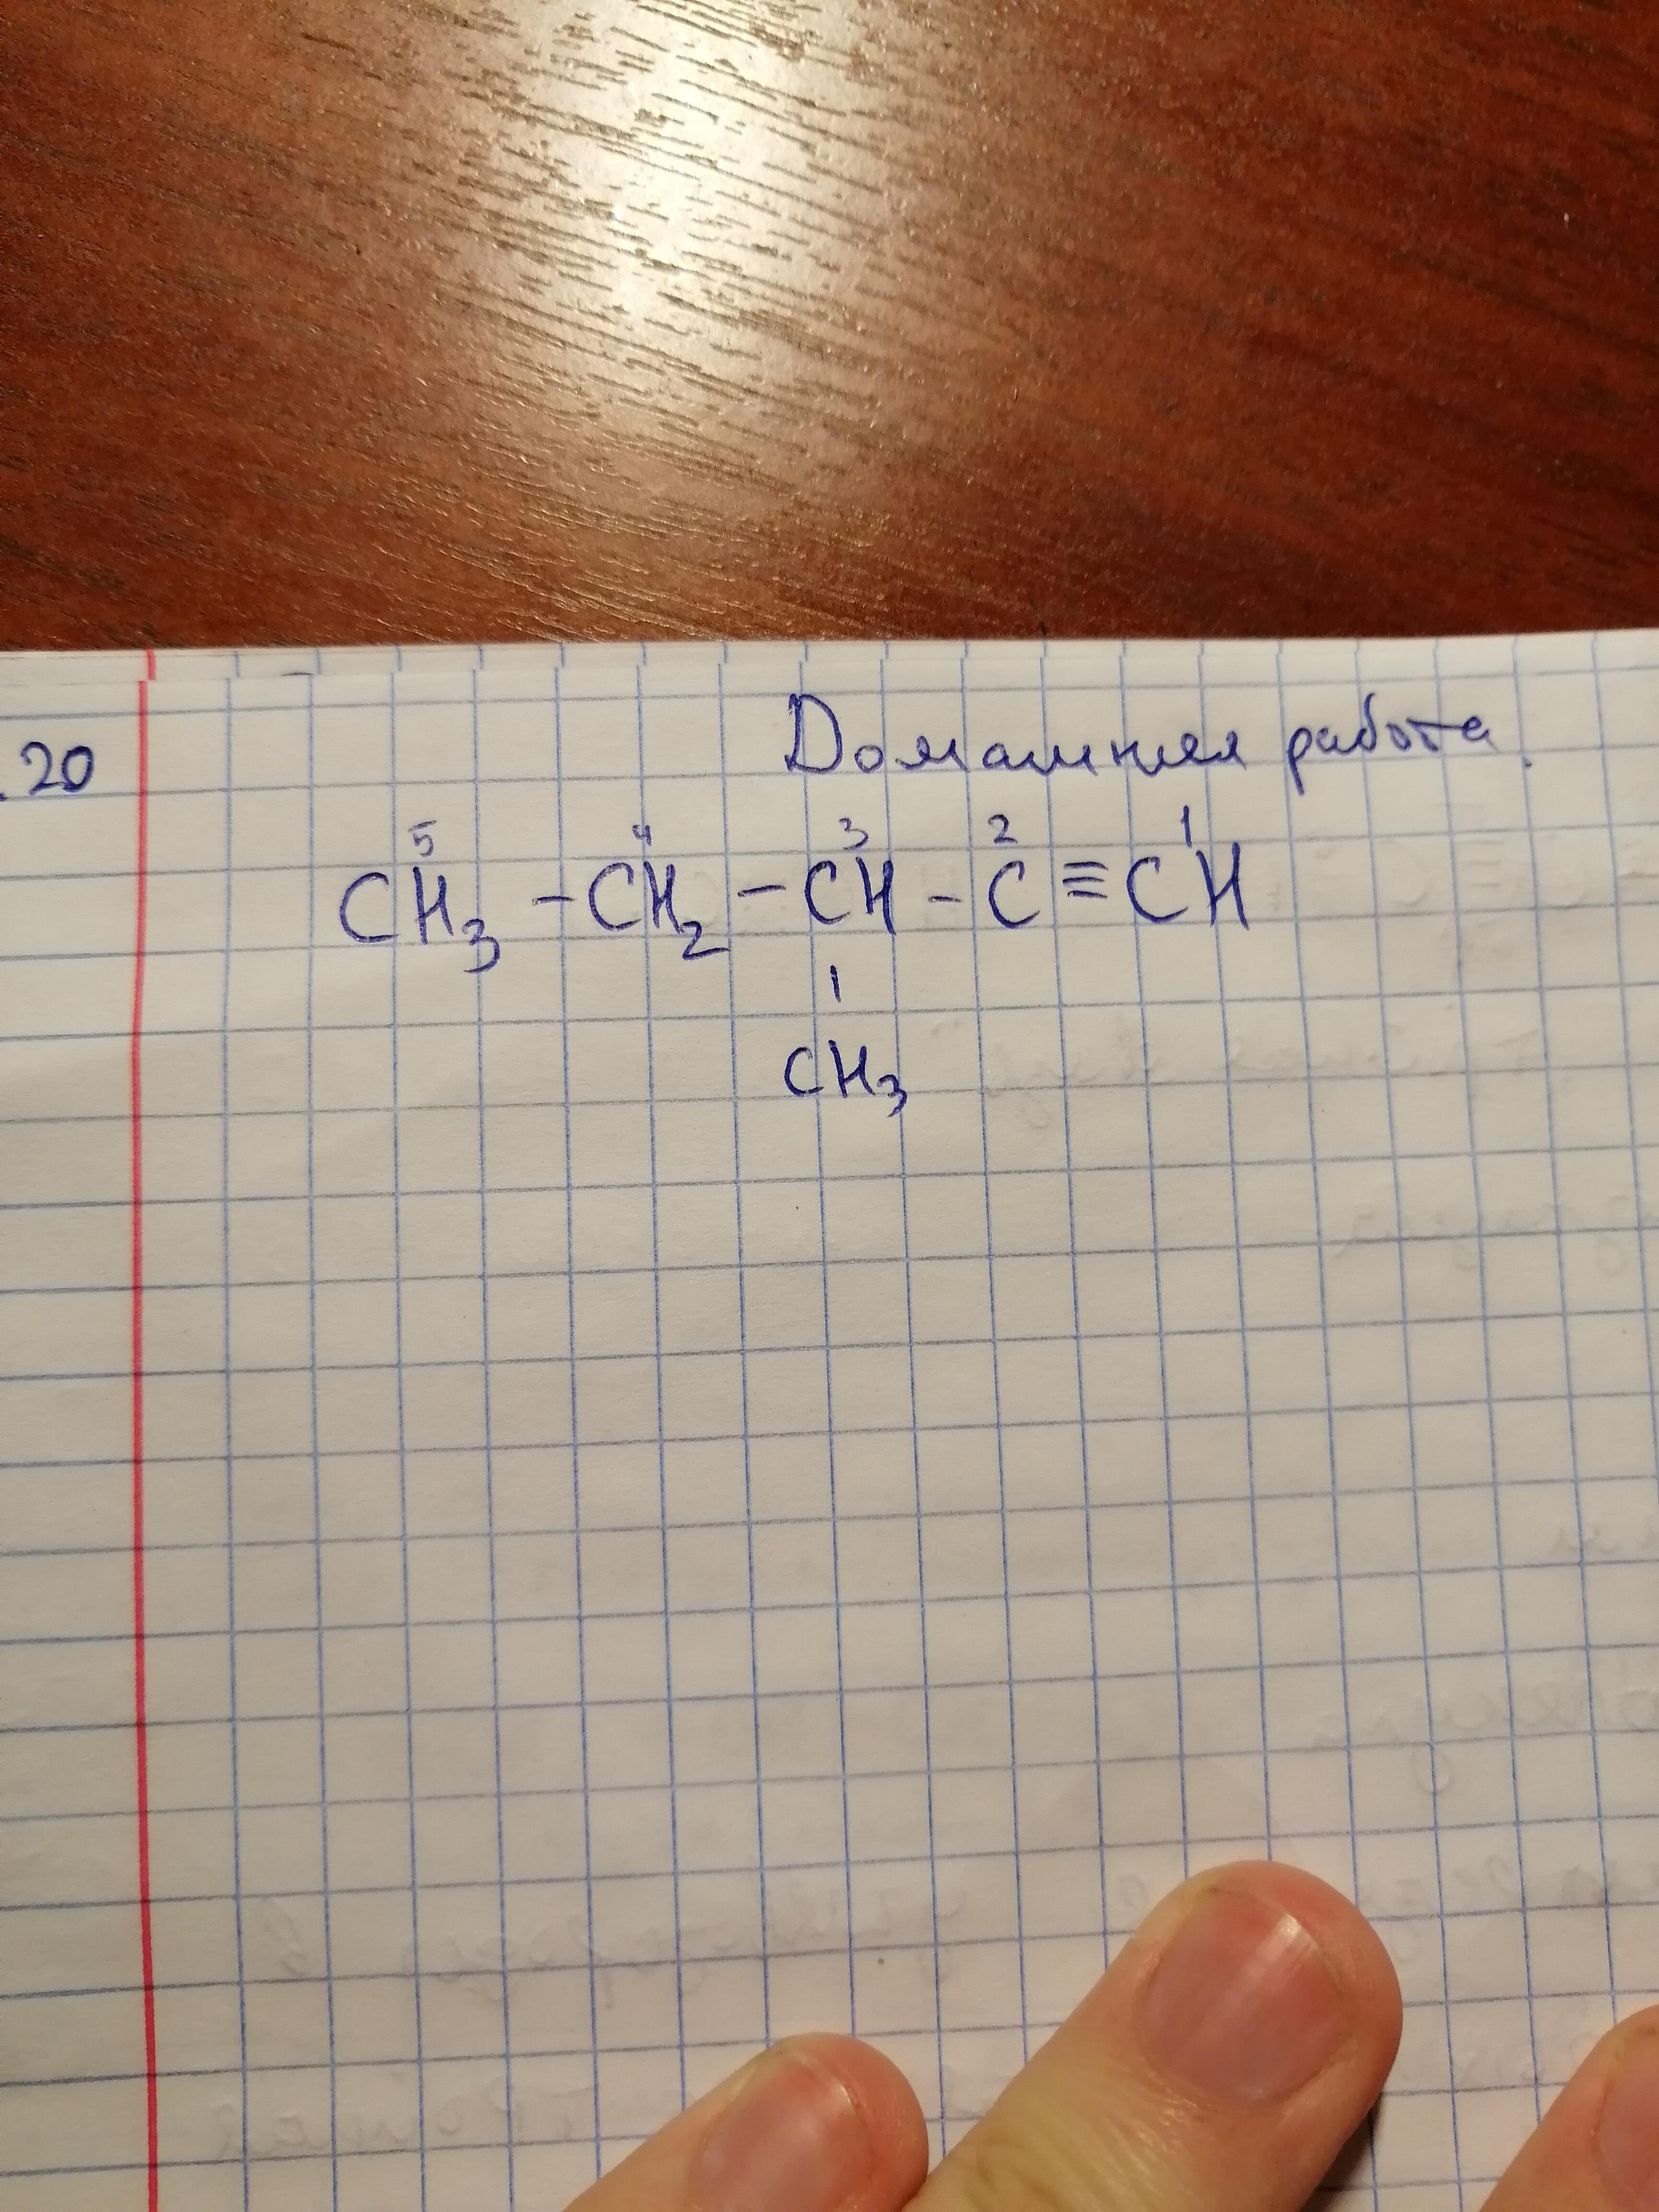 .20 Домашняя работа.
5 4 3 2 1
CH₃ - CH₂ - CH - C ≡ CH
|
CH₃